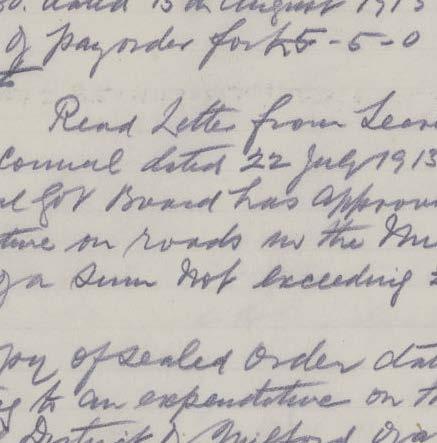 dated 15th August 1913
of payorder for £5-5-0
Read Letter from
Council dated 22 July 1913
Gov Board has Approv
ture on roads in the
of a sum not exceeding
py of sealed order dat
g to an expenditure on th
District of Milford